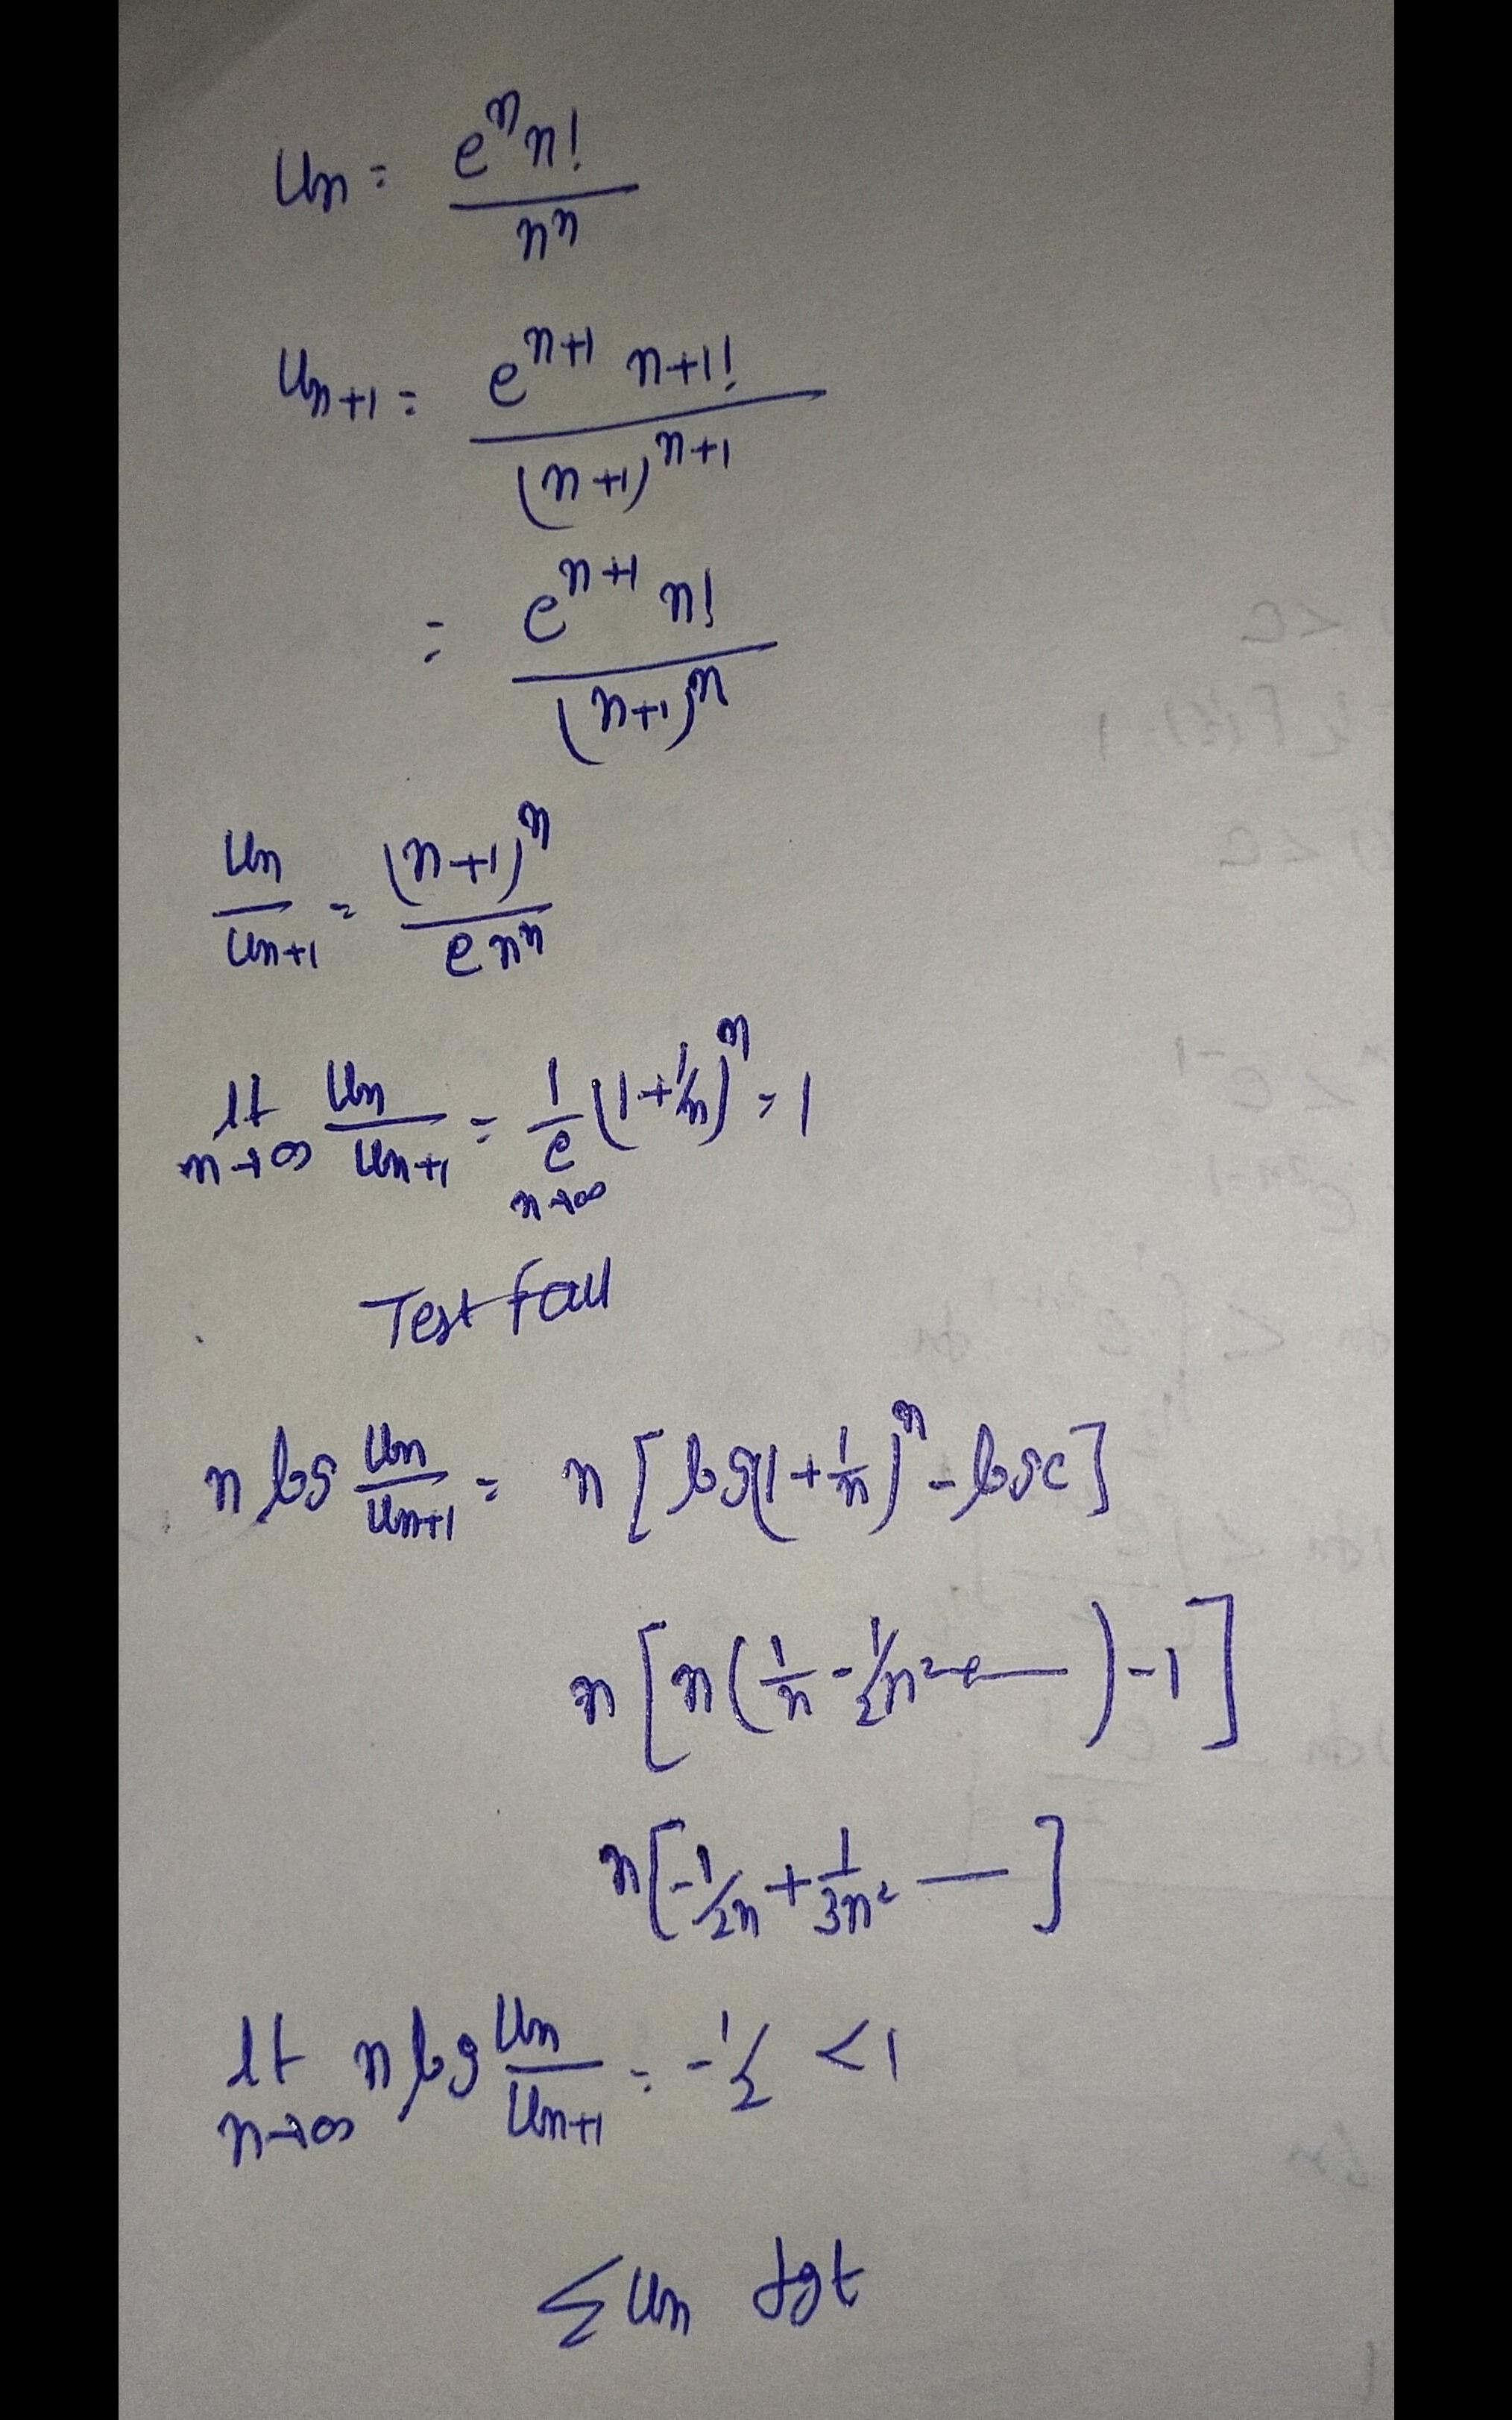 Un = e^n n! / n^n
Un+1 = e^(n+1) n+1! / (n+1)^(n+1)
= e^(n+1) n! / (n+1)^n
Un / Un+1 = (n+1)^n / e n^n
lt n→∞ Un / Un+1 = 1/e (1+1/n)^n = 1
n→∞
Test fail
n log Un / Un+1 = n [ log(1+1/n)^n - log e ]
n [ n ( 1/n - 1/2n² + — ) - 1 ]
n [ -1/2n + 1/3n² — ]
lt n→∞ n log Un / Un+1 = -1/2 < 1
Σ Un dgt